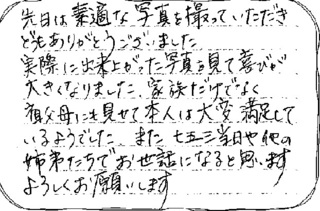 先日は素適な写真を撮っていただき
どうもありがとうございました
実際に出来上がった写真を見て喜びが
大きくなりました、家族だけでなく
祖父母にも見せて本人は大変満足して
いるようでした また七五三当日や他の
姉弟たちでお世話になると思います
よろしくお願いします